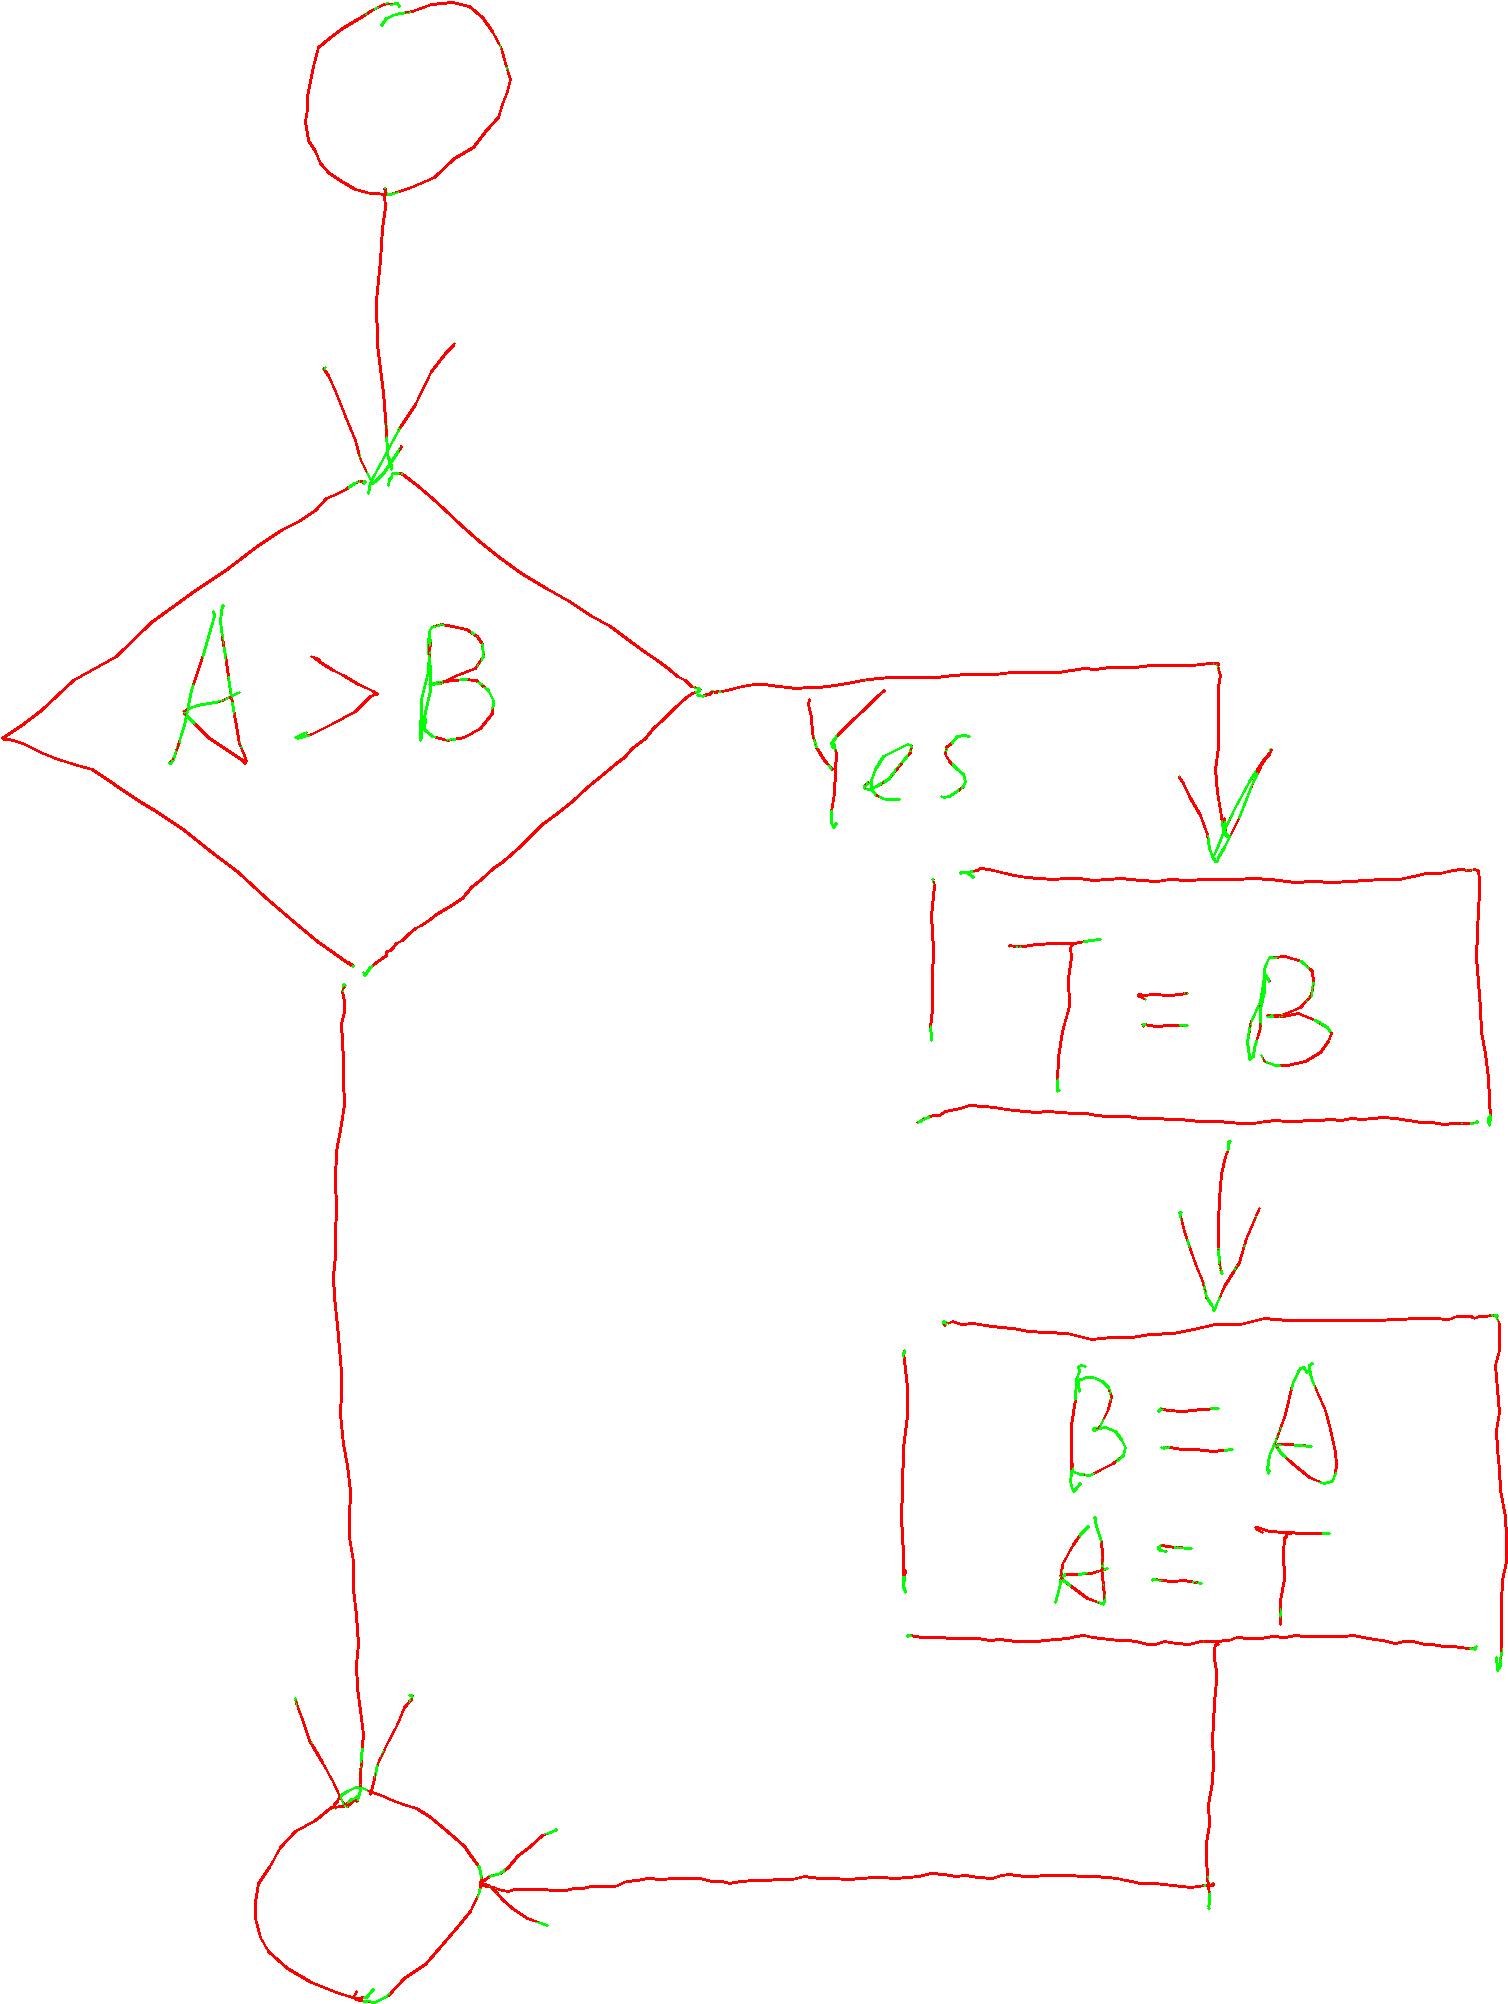 A > B
Yes
T = B
B = A
A = T